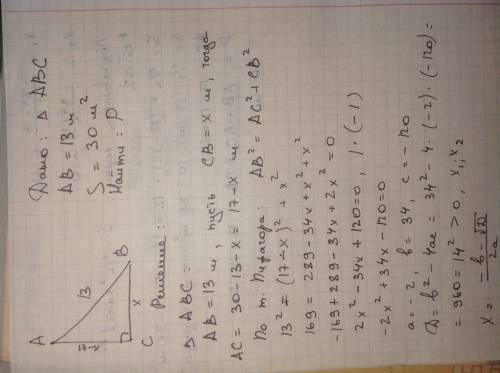 Дано: △ ABC
AB = 13 м
S = 30 м²
Найти: P
A
13
B
x
C
Решение:
△ ABC:
AB = 13 м, пусть CB = x м, тогда
AC = 30 - 13 - x = 17 - x м
По т. Пифагора: AB² = AC² + CB²
13² = (17 - x)² + x²
169 = 289 - 34x + x² + x²
-169 + 289 - 34x + 2x² = 0
2x² - 34x + 120 = 0, | · (-1)
-2x² + 34x - 120 = 0
a = -2, b = 34, c = -120
D = b² - 4ac = 34² - 4 · (-2) · (-120) =
= 960 = 14² > 0, x₁; x₂
x = b - √D / 2a